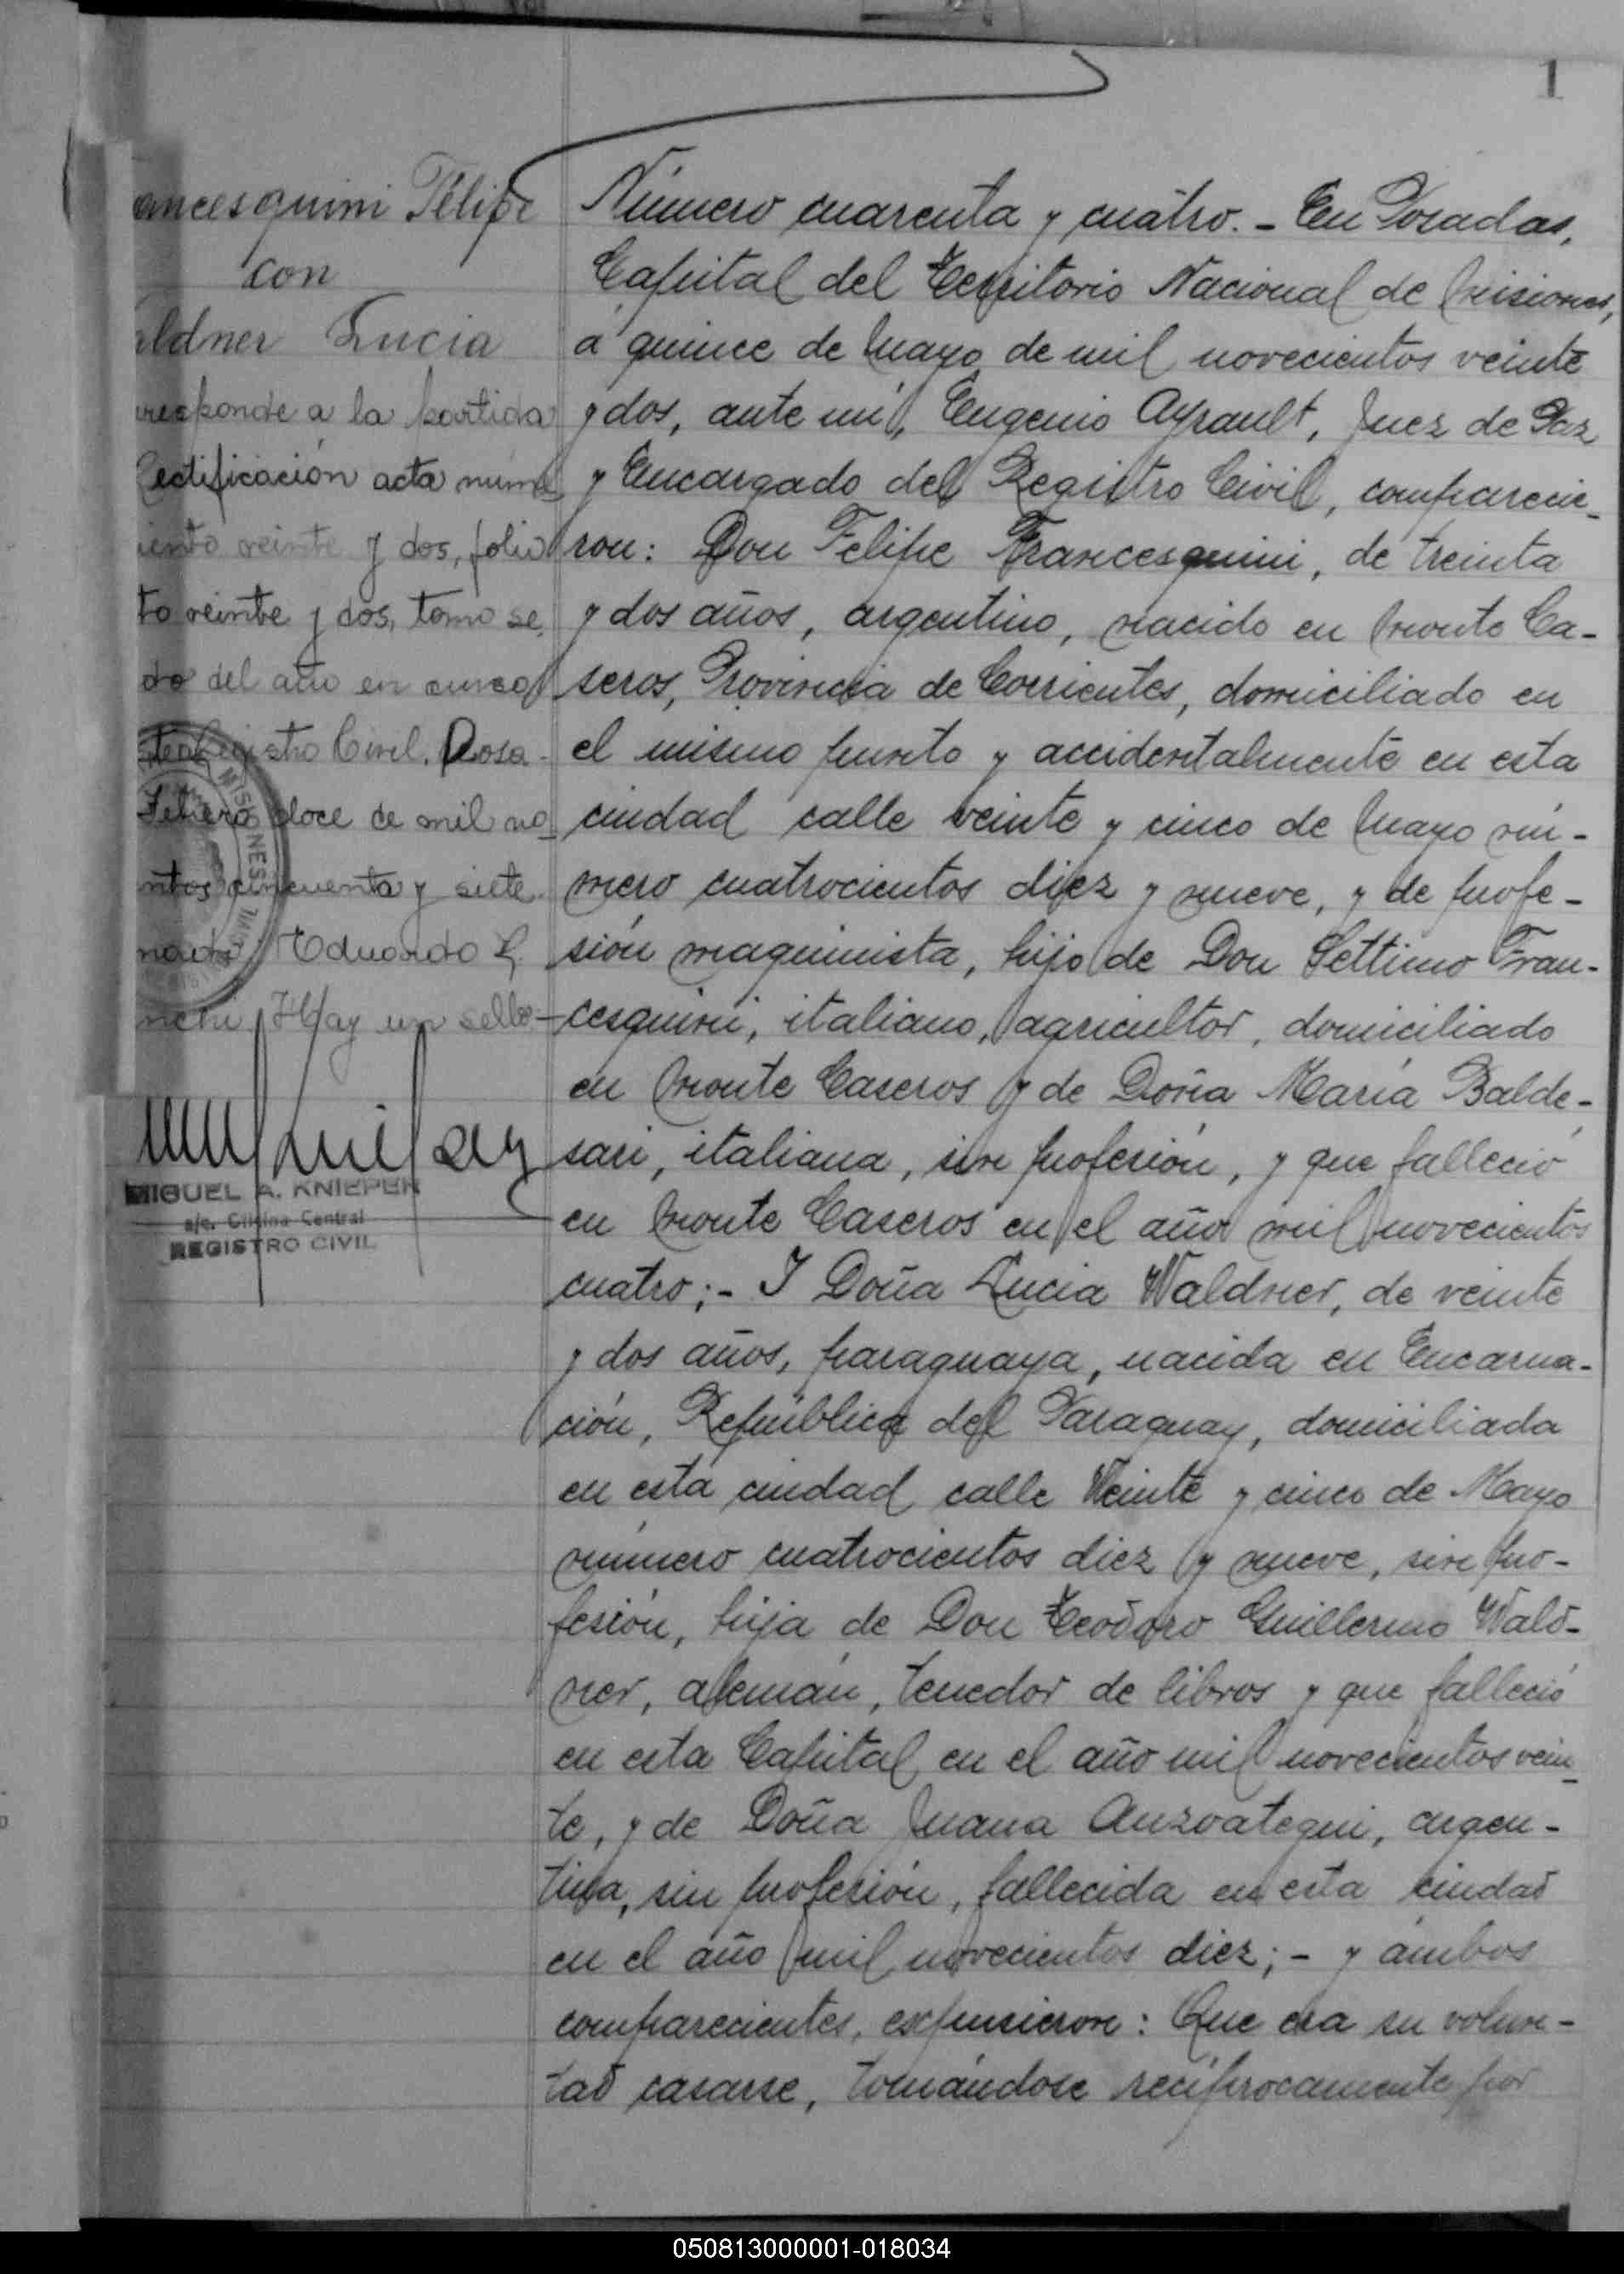 1
ancesquini Felipe
con
aldner Lucia
responde a la partida
Rectificación acta núme
iento veinte y dos, folio
to veinte y dos, tomo se
do del año en curso
Registro Civil. Posa-
Febrero doce de mil no
ntos cincuenta y siete.
Eduardo
Hay un sello
MISIONES
MIGUEL A. KNIEPER
a/c. Oficina Central
REGISTRO CIVIL
Número cuarenta y cuatro. - En Posadas,
Capital del Territorio Nacional de Misiones,
á quince de Mayo de mil novecientos veinte
y dos, ante mí, Eugenio Ayrault, Juez de Paz
y Encargado del Registro Civil, comparecie-
ron: Don Felipe Francesquini, de treinta
y dos años, argentino, nacido en Monte Ca-
seros, Provincia de Corrientes, domiciliado en
el mismo punto y accidentalmente en esta
ciudad calle veinte y cinco de Mayo nú-
mero cuatrocientos diez y nueve, y de profe-
sión maquinista, hijo de Don Settimo Fran-
cesquini, italiano, agricultor, domiciliado
en Monte Caseros y de Doña María Balde-
sari, italiana, sin profesión, y que falleció
en Monte Caseros en el año mil novecientos
cuatro; - Y Doña Lucia Waldner, de veinte
y dos años, paraguaya, nacida en Encarna-
ción, República del Paraguay, domiciliada
en esta ciudad calle Veinte y cinco de Mayo
número cuatrocientos diez y nueve, sin pro-
fesión, hija de Don Teodoro Guillermo Wald-
ner, alemán, tenedor de libros y que falleció
en esta Capital en el año mil novecientos vein-
te, y de Doña Juana Anzoategui, argen-
tina, sin profesión, fallecida en esta ciudad
en el año mil novecientos diez; - y ambos
comparecientes, expusieron: Que era su volun-
tad casarse, tomándose recíprocamente por
050813000001-018034